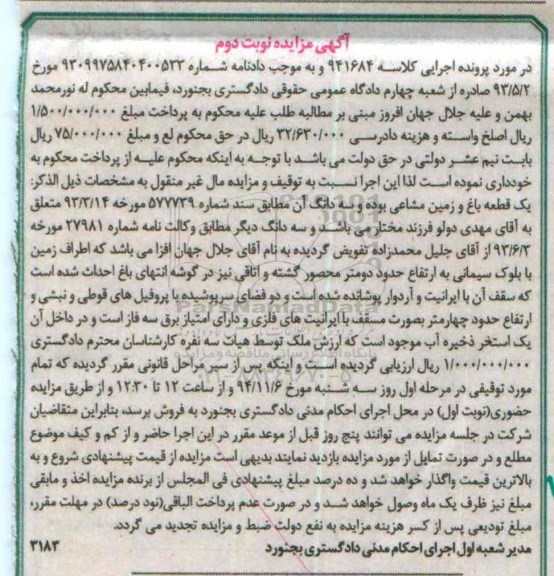 آگهی مزایده نوبت دوم
در مورد پرونده اجرایی کلاسه ۹۴۱۶۸۴ و به موجب دادنامه شماره ۹۳۰۹۹۷۵۸۴۰۴۰۰۵۳۳ مورخ
۹۳/۵/۲ صادره از شعبه چهارم دادگاه عمومی حقوقی دادگستری بجنورد، فیمابین محکوم له نورمحمد
بهمن و علیه جلال جهان افروز مبنی بر مطالبه طلب علیه محکوم به پرداخت مبلغ ۱/۵۰۰/۰۰۰/۰۰۰
ریال اصلخ واسته و هزینه دادرسی ۳۲/۶۳۰/۰۰۰ ریال در حق محکوم لع و مبلغ ۷۵/۰۰۰/۰۰۰ ریال
بابت نیم عشر دولتی در حق دولت می باشد با توجه به اینکه محکوم علیه از پرداخت محکوم به
خودداری نموده است لذا این اجرا نسبت به توقیف و مزایده مال غیر منقول به مشخصات ذیل الذکر:
یک قطعه باغ و زمین مشاعی بوده و سه دانگ آن مطابق سند شماره ۵۷۷۷۳۹ مورخه ۹۳/۳/۱۴ متعلق
به آقای مهدی دولو فرزند مختار می باشد و سه دانگ دیگر مطابق وکالت نامه شماره ۲۷۹۸۱ مورخه
۹۳/۶/۳ از آقای جلیل محمدزاده تفویض گردیده به نام آقای جلال جهان افزا می باشد که اطراف زمین
با بلوک سیمانی به ارتفاع حدود دومتر محصور گشته و اتاقی نیز در گوشه انتهای باغ احداث شده است
که سقف آن با ایرانیت و آردوار پوشانده شده است و دو فضای سرپوشیده با پروفیل های قوطی و نبشی و
ارتفاع حدود چهارمتر بصورت مسقف با ایرانیت های فلزی و دارای امتیاز برق سه فاز است و در داخل آن
یک استخر ذخیره آب موجود است که ارزش ملک توسط هیات سه نفره کارشناسان محترم دادگستری
۱/۰۰۰/۰۰۰/۰۰۰ ریال ارزیابی گردیده است و اینکه پس از سیر مراحل قانونی مقرر گردیده که تمام
مورد توقیفی در مرحله اول روز سه شنبه مورخ ۹۴/۱۱/۶ و از ساعت ۱۲ تا ۱۲:۳۰ و از طریق مزایده
حضوری(نوبت اول) در محل اجرای احکام مدنی دادگستری بجنورد به فروش برسد، بنابراین متقاضیان
شرکت در جلسه مزایده می توانند پنج روز قبل از موعد مقرر در این اجرا حاضر و از کم و کیف موضوع
مطلع و در صورت تمایل از مورد مزایده بازدید نمایند بدیهی است مزایده از قیمت پیشنهادی شروع و به
بالاترین قیمت واگذار خواهد شد و ده درصد مبلغ پیشنهادی فی المجلس از برنده مزایده اخذ و مابقی
مبلغ نیز ظرف یک ماه وصول خواهد شد و در صورت عدم پرداخت الباقی(نود درصد) در مهلت مقرر،
مبلغ تودیعی پس از کسر هزینه مزایده به نفع دولت ضبط و مزایده تجدید می گردد.
مدیر شعبه اول اجرای احکام مدنی دادگستری بجنورد ۳۱۸۳